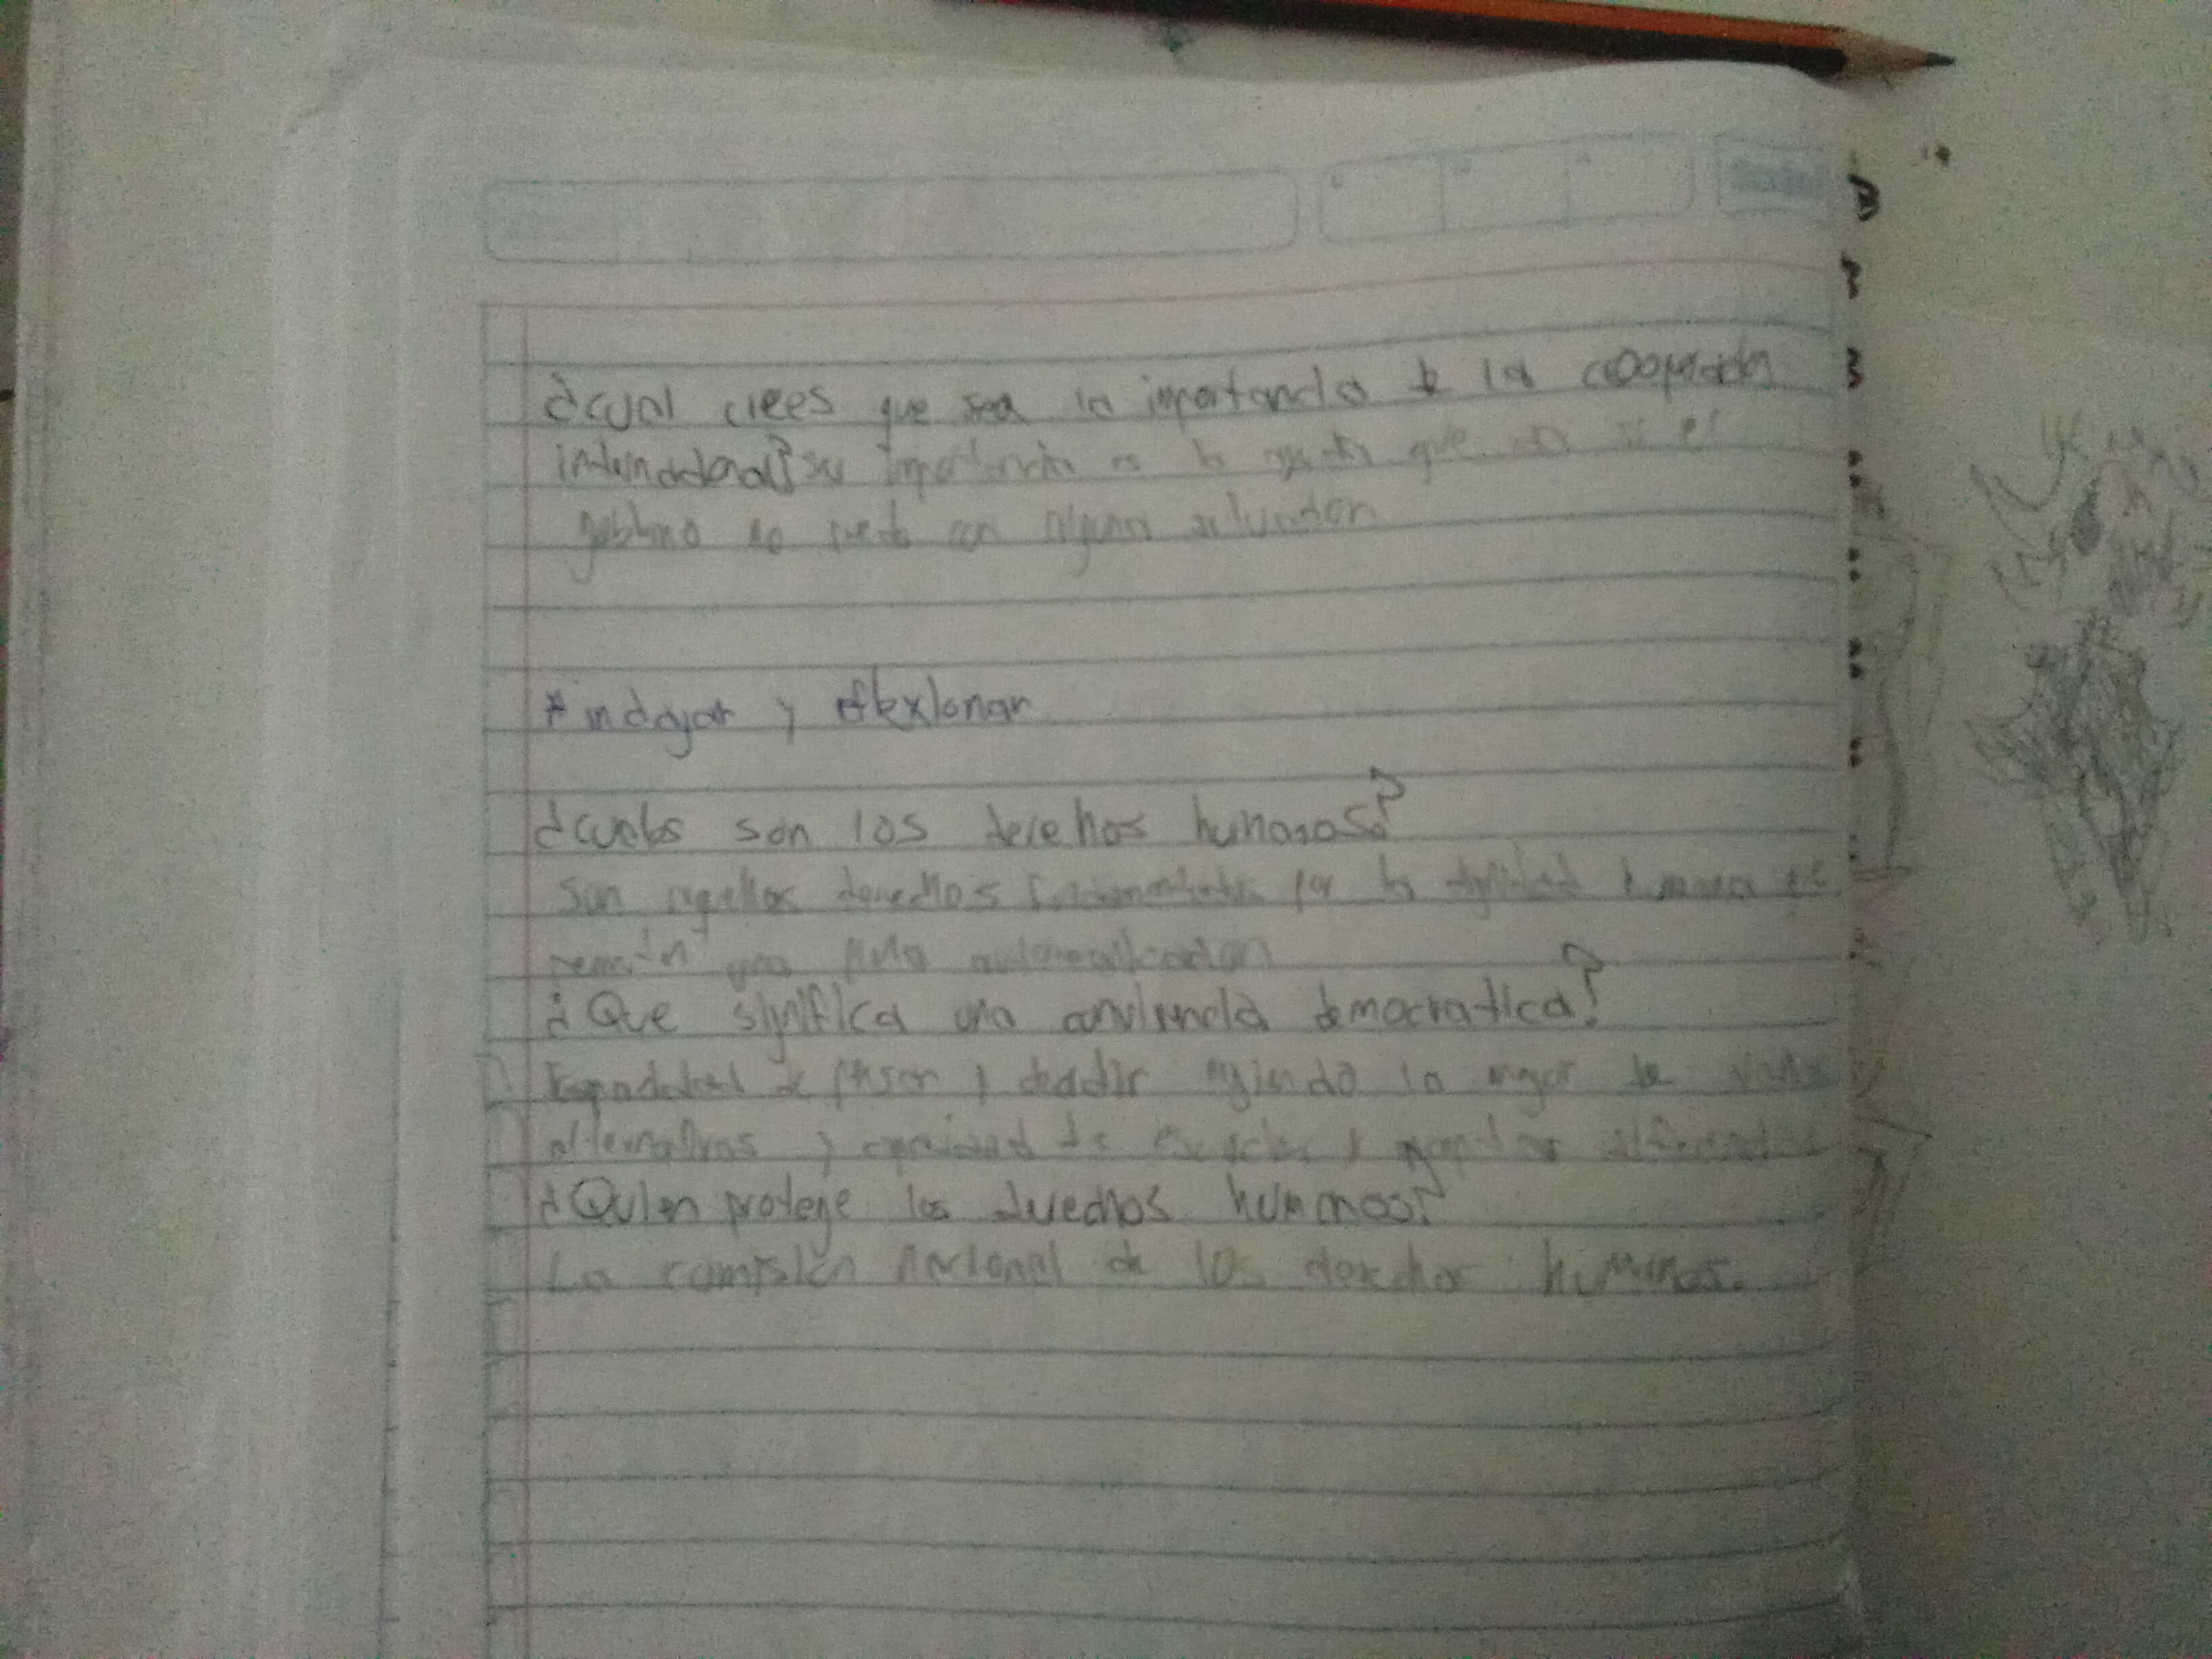 ¿cual crees que sea la importancia de la cooperación
internacional? su importancia es la ayuda que da si el
gobierno no puede con alguna situación
* indagar y reflexionar
¿cuales son los derechos humanos?
Son aquellos derechos por la dignidad humana que
una
¿Que significa una convivencia democratica?
Capacidad de pensar y decidir eligiendo la mejor de varias
alternativas y capacidad de escuchar y
¿Quien protege los derechos humanos?
La comisión nacional de los derechos humanos.